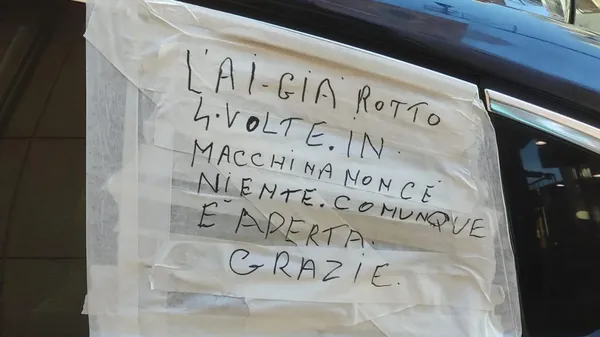 L'AI-GIÀ ROTTO
4.VOLTE.IN
MACCHINA NON C'È
NIENTE.COMUNQUE
È APERTA.
GRAZIE.